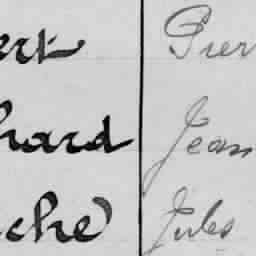 ert Pier
hard Jean
che Jules